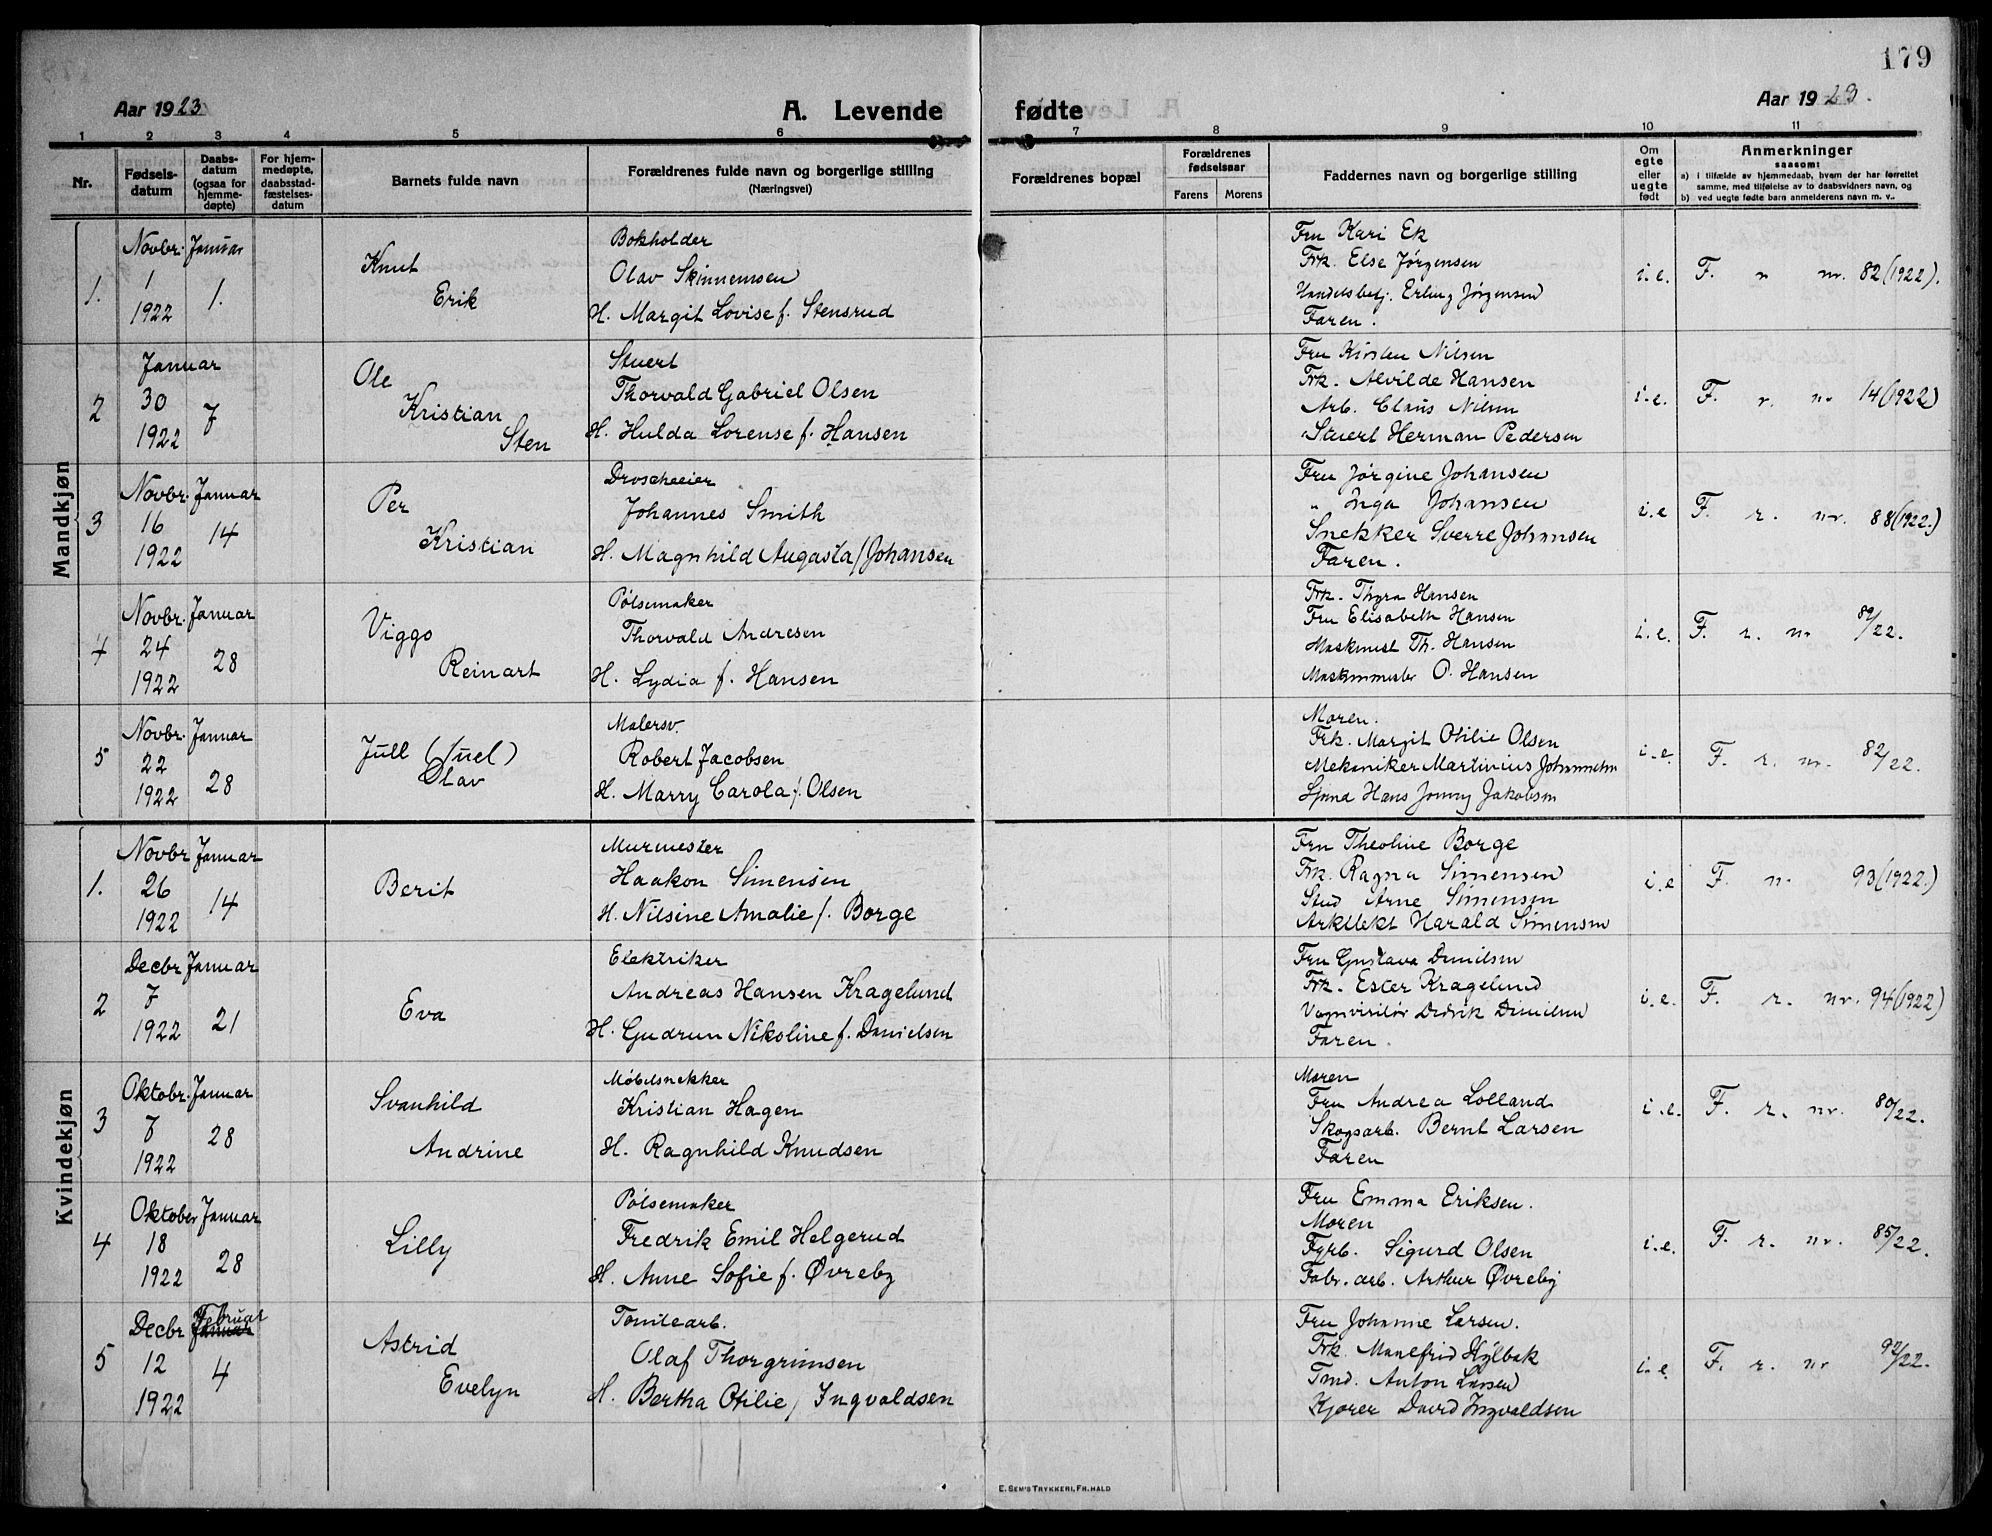 179
Aar 1923
A. Levende fødte
Aar 1923.
1 2 3 4 5 6 7 8 9 10 11
Nr.
Fødsels-
datum
Daabs-
datum
(ogsaa for
hjemme-
døpte)
For hjem-
medøpte,
daabsstad-
fæstelses-
datum
Barnets fulde navn
Forældrenes fulde navn og borgerlige stilling
(Næringsvei)
Forældrenes bopæl
Forældrenes
fødselsaar
Farens
Morens
Faddernes navn og borgerlige stilling
Om
egte
eller
uegte
født
Anmerkninger
saasom:
a) i tilfælde av hjemmedaab, hvem der har forrettet
samme, med tilføielse av to daabsvidners navn, og
b) ved uegte fødte barn anmelderens navn m. v..
Mandkjøn
1.
Novbr.
1
1922
Januar
1.
Knut
Erik
Bokholder
Olav Skinnemoen
H. Margit Lovise f. Stensrud
Fru Kari Ek
Frk. Else Jørgensen
Handelsbetj. Erling Jørgensen
Faren.
i.e.
F. r nr. 82 (1922).
2
Januar
30
1922
7
Ole
Kristian
Sten
Stuert
Thorvald Gabriel Olsen
H. Hulda Lorense f. Hansen
Fru Kirsten Nilsen
Frk. Alvilde Hansen
Arb. Claus Nilsen
Stuert Herman Pedersen
i.e.
F. r. nr 14 (1922)
3
Novbr.
16
1922
Januar
14
Per
Kristian
Droscheeier
Johannes Smith
H. Magnhild Augasta f Johansen
Fru Jørgine Johansen
" Inga Johansen
Snekker Sverre Johansen
Faren.
i.e
F. r. nr. 88 (1922.)
4
Novbr.
24
1922
Januar
28
Viggo
Reinart
Pølsemaker
Thorvald Andresen
H. Lydia f. Hansen
Frk. Thyra Hansen
Fru Elisabeth Hansen
Maskinist Th. Hansen
Maskinmester O. Hansen
i.e.
F. r. nr 89/22.
5
Novbr.
22
1922
Januar
28
Jull (Juel)
Olav
Malersv.
Robert Jacobsen
H. Marry Carola f. Olsen
Moren.
Frk. Margit Otilie Olsen
Mekaniker Martinius Johannesen
Sjmd Hans Jonny Jakobsen
i.e.
F. r. nr. 82/22.
Kvindekjøn
1.
Novbr
26
1922
Januar
14
Berit
Murmester
Haakon Simensen
H. Nilsine Amalie f. Borge
Fru Theoline Borge
Frk. Ragna Simensen
Stud Arne Simensen
Arkitekt Harald Simensen
i.e
F. nr 93 (1922.)
2
Decbr
7
1922
Januar
21
Eva
Elektriker
Andreas Hansen Kragelund
H. Gudrun Nikoline f. Danielsen
Fru Gustava Danielsen
Frk. Ester Kragelund
Vognvisitør Didrik Danielsen
Faren.
i.e.
F. r. nr. 94 (1922)
3
Oktobr.
7
1922
Januar
28
Svanhild
Andrine
Møbelsnekker
Kristian Hagen
H. Ragnhild Knudsen
Moren
Fru Andrea Lolland
Skogsarb. Bernt Larsen
Faren
i.e.
F. r. nr. 80/22.
4
Oktober
18
1922
Januar
28
Lilly
Pølsemaker
Fredrik Emil Helgerud
H. Anne Sofie f. Øvreby
Fru Emma Eriksen.
Moren
Fyrb. Sigurd Olsen
Fabr. arb. Arthur Øvreby
i.e.
F. r. nr. 85/22.
5
Decbr
12
1922
Februar
Januar
4
Astrid
Evelyn
Tomtearb.
Olaf Thorgrimsen
H. Bertha Otilie f Ingvaldsen
Fru Johanne Larsen.
Frk. Manefrid Hylbak
Tmd. Anton Larsen
Kjører David Ingvaldsen
i.e
F. r. nr 92/22.
E. SEM'S TRYKKERI, FR.HALD